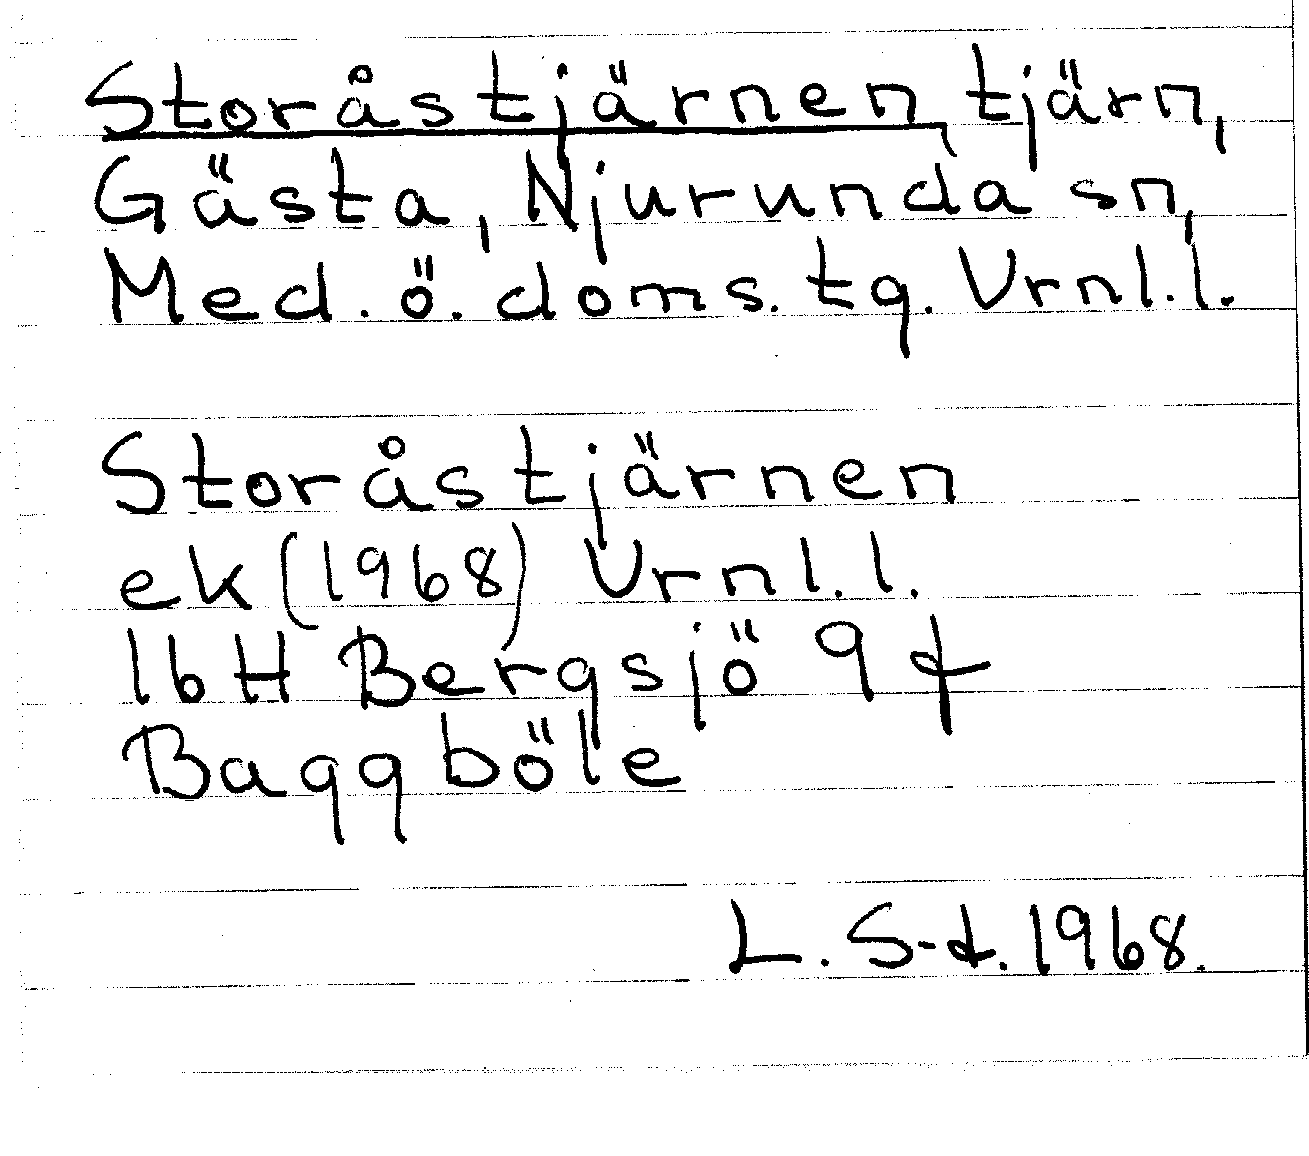 Storåstjärnen tjärn,
Gästa, Njurunda sn,
Med. ö. doms. tg. Vrnl. l.
Storåstjärnen
ek (1968) Vrnl. l.
16H Bergsjö 9 f
Baggböle
L. S-d. 1968.